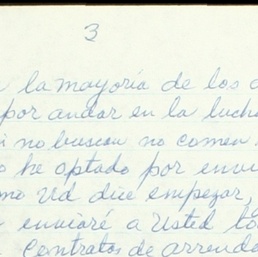 3
la mayoría de los
por andar en la lucha
no buscan no comen
he optado por
Ud dice empezar,
enviaré a Usted
Contratos de